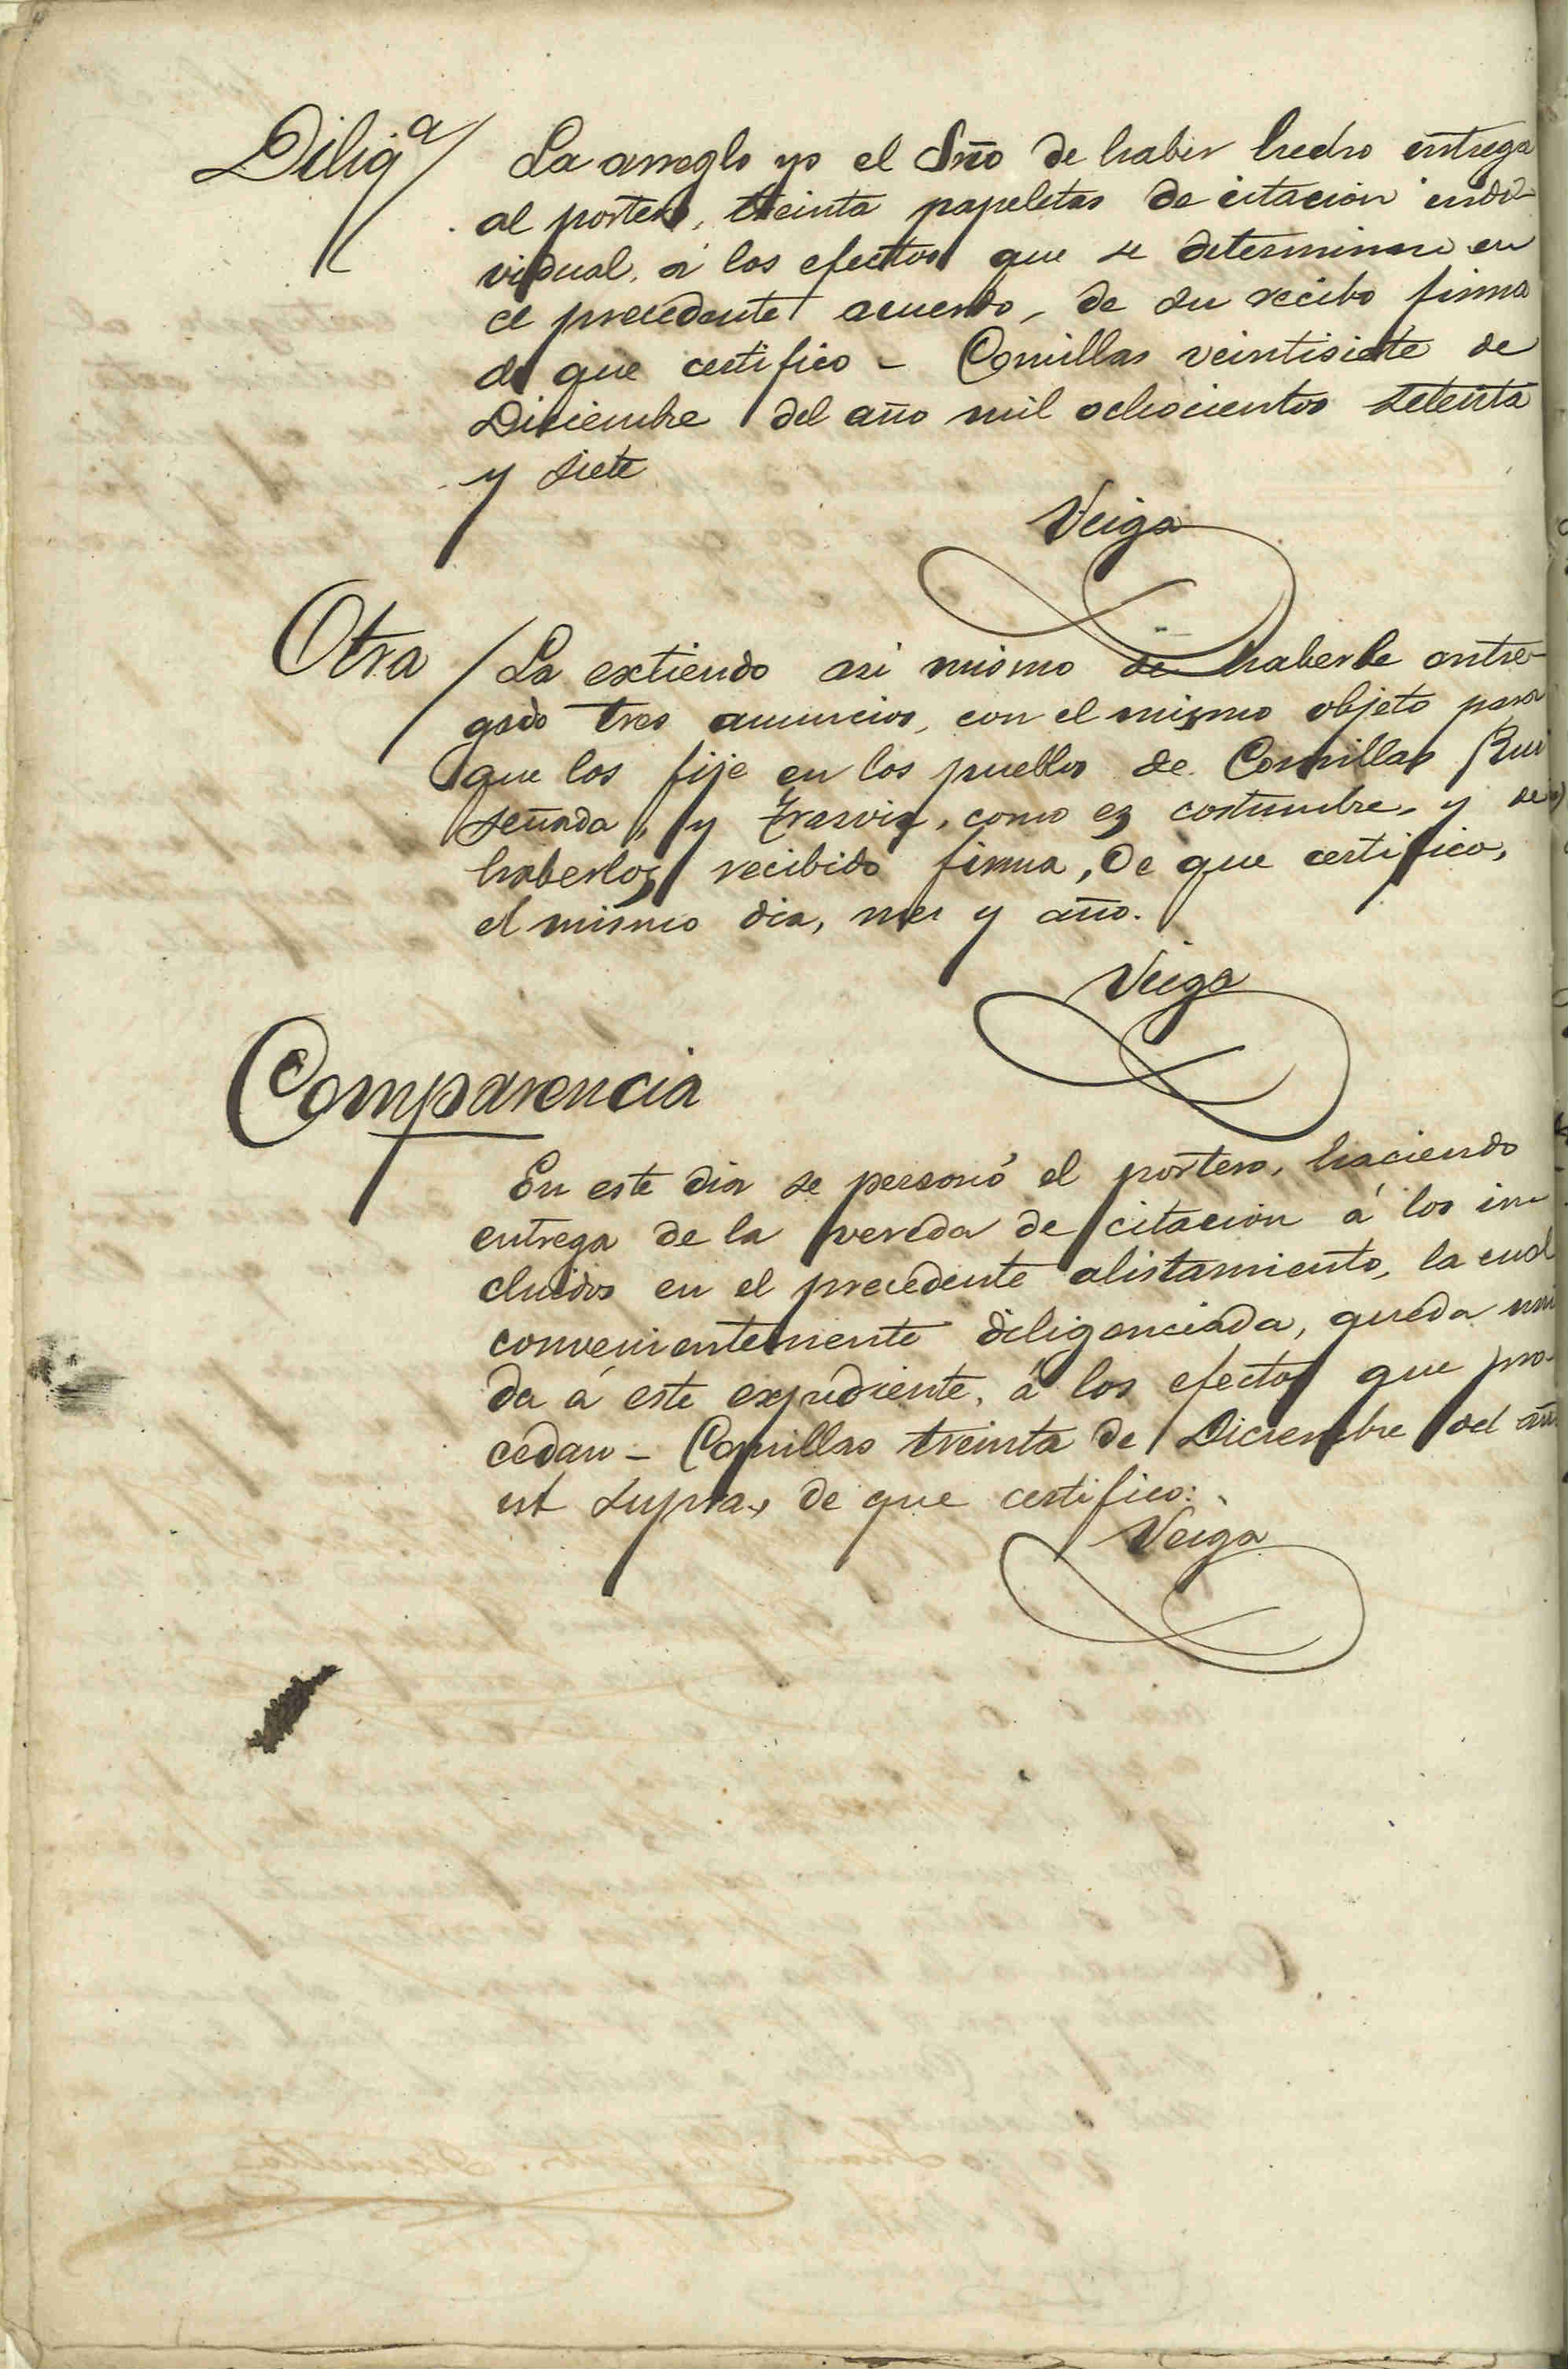 Dilig.ª / La arreglo yo el Srio de haber hecho entrega
al portero, treinta papeletas de citacion indi-
vidual, á los efectos que se determinan en
el precedente acuerdo, de su recibo firma
de que certifico - Comillas veintisiete de
Diciembre del año mil ochocientos setenta
y siete
Veiga
Otra / La extiendo asi mismo de haberle entre-
gado tres anuncios, con el mismo objeto para
que los fije en los pueblos de Comillas Rui
señada, y Trasvia, como es costumbre, y de
haberlos recibido firma, de que certifico,
el mismo dia, mes y año.
Veiga
Comparencia
En este dia se personó el portero, haciendo
entrega de la vereda de citacion á los in-
cluidos en el precedente alistamiento, la cual
convenientemente diligenciada, queda uni
da á este expediente, á los efectos que pro-
cedan - Comillas treinta de Diciembre del año
ut supra, de que certifico:
Veiga